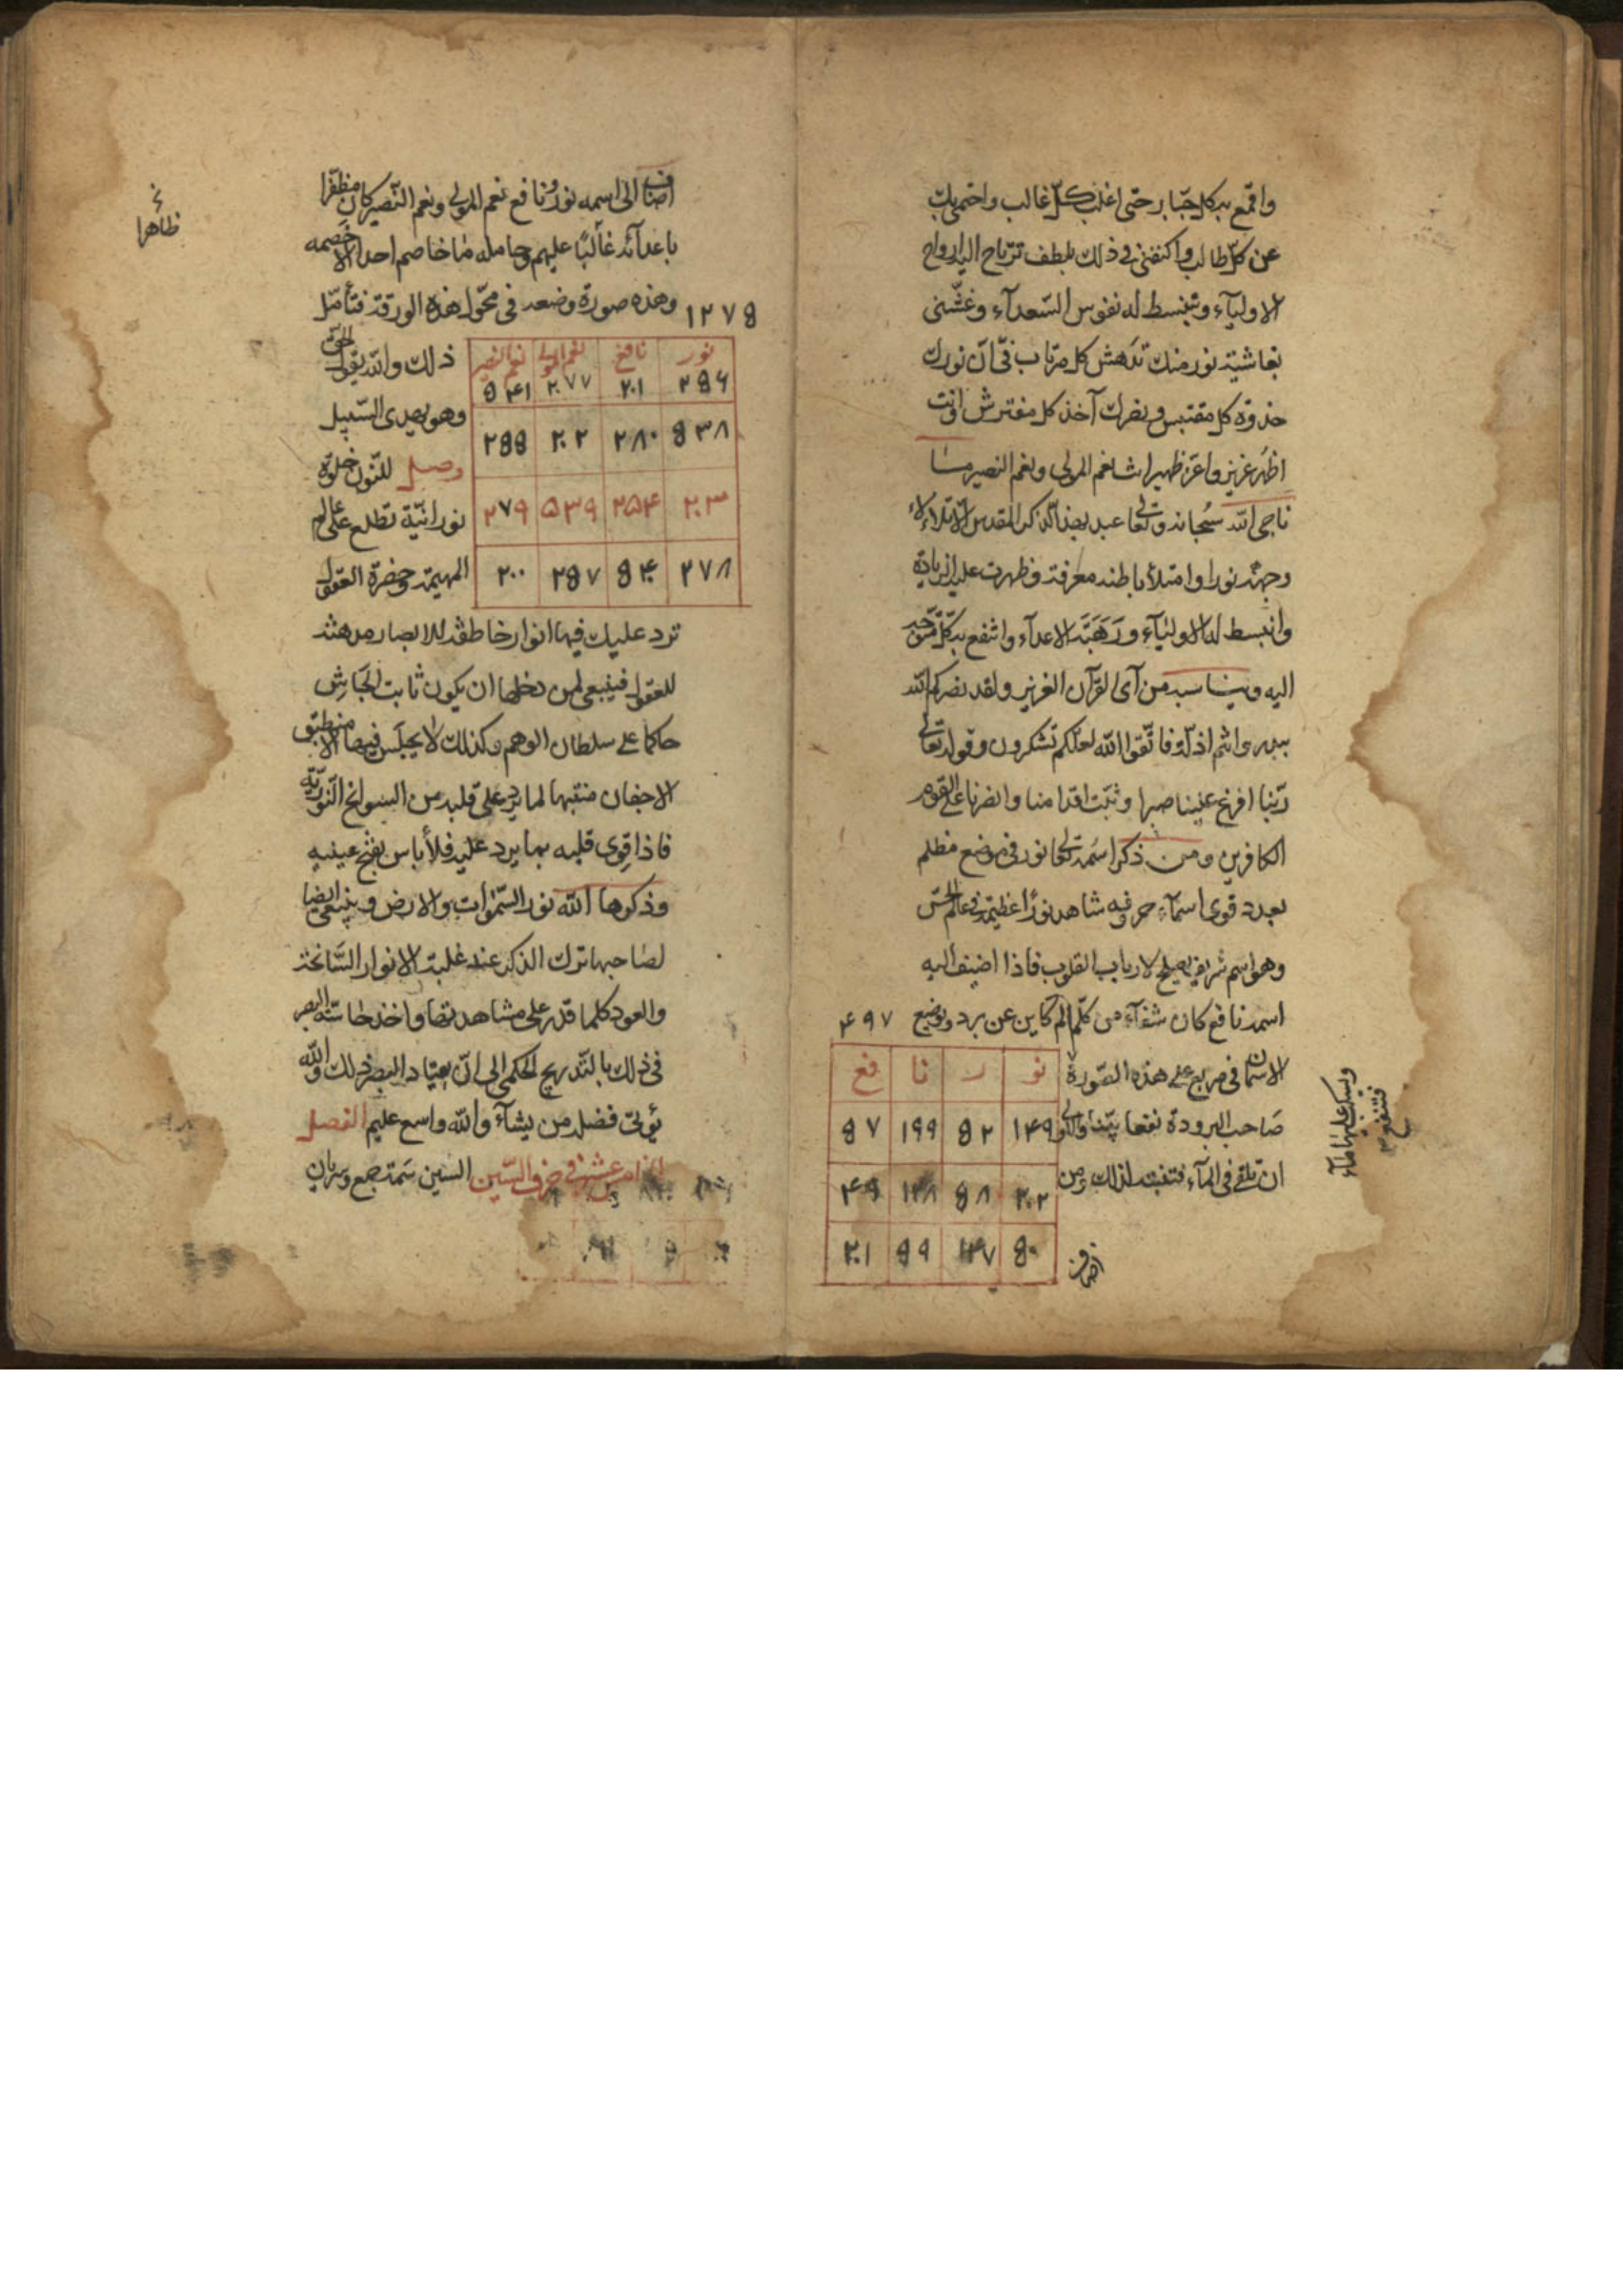 واقمع به كل جبار حتى اغلب كل غالب واحتمى بك
عن كل طالب واكنفنى فى ذلك بلطف ترتاح اليه ارواح
الاوليآء وتنبسط له نفوس السعدآء وغشنى
بغاشية نور منك تدهش كل مرتاب فى ان نورك
جذوة كل مقتبس و نصرك آخذ كل مفترش وانت
اظهر عزيز واعز ظهير انت نعم المولى ونعم النصير ما
ناجى الله سبحانه وتعالى عبد بهذا الذكر المقدس الا تلألأ
وجهه نورا وامتلأ باطنه معرفة وظهرت عليه زيادة
وانبسط له الاوليآء ورهبته الاعدآء وانتفع به كل متوجه
اليه ويناسبه من آى القرآن العزيز ولقد نصركم الله
ببدر وانتم اذلة فاتقوا الله لعلكم تشكرون وقوله تعالى
ربنا افرغ علينا صبرا وثبت اقدامنا وانصرنا على القوم
الكافرين ومن ذكر اسمه تعالى نور فى موضع مظلم
بعدد قوى اسمآء حروفه شاهد نورا عظيما فى عالم الحس
وهو اسم شريف يصلح لارباب القلوب فاذا اضيف اليه
اسمه نافع كان شفآء من كل الم كاين عن برد ويوضع ۴۹۷
الاسمان فى مربع على هذه الصورة
نو ر نا فع
صاحب البرودة نفعا بينا والاولى
۱۴۹ ۵۲ ۱۹۹ ۹۷
ان تلقى فى المآء فتنفعه لذلك ومن
۲۰۲ ۵۸ ۱۴۸ ۴۹
۵۰ ۱۴۷ ۵۹ ۲۰۱
اضاف
ويسكب عليها مآء
فتنفع
اضاف الى اسمه نور ونافع نعم المولى ونعم النصير كان مظفرا
باعدآئه غالبا عليهم وحامله ما خاصم احدا الا خصمه
ظاهرا
وهذه صورة وضعه فى محول هذه الورقة فتأمل
۱۲۷۵
ذلك والله يقول الحق
نور نافع نعم المولى نعم النصير
۲۵۶ ۲۰۱ ۲۷۷ ۵۴۱
وهو يهدى السبيل
۵۳۸ ۲۸۰ ۲۰۲ ۲۵۵
وصل للنون خلوة
نورانية تطلع على عالم
۲۰۳ ۲۵۴ ۵۳۹ ۲۷۹
المهيمة وحضرة العقول
۲۷۸ ۵۴۰ ۲۵۷ ۲۰۰
ترد عليك فيها انوار خاطفة للابصار مدهشة
للعقول فينبغى لمن دخلها ان يكون ثابت الجاش
حاكما على سلطان الوهم وكذلك لا يجلس فيها الا منطبق
الاجفان منتبها لما يرد على قلبه من السوانح النورية
فاذا قوى قلبه بما يرد عليه فلا باس بفتح عينيه
وذكرها الله نور السموات والارض وينبغى ايضا
لصاحبها ترك الذكر عند غلبة الانوار السانحة
والعود كلما قدر على مشاهدتها واخذ حاسته البصر
فى ذلك بالتدريج الحكمى الى ان يعتاد البصر ذلك والله
يؤتى فضله من يشآء والله واسع عليم الفصل
الخامس عشر فى حرف السين السين سمة جمع وسريان